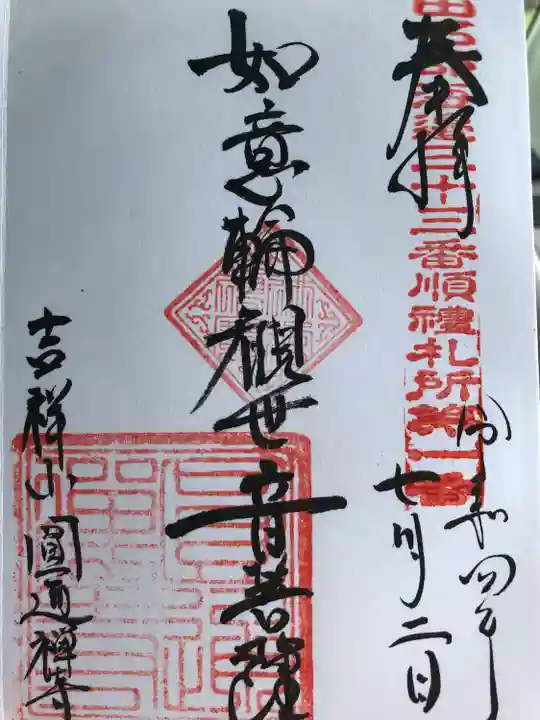 奉拝
三十三番順禮札所第一番
令和四年
七月二日
如意輪觀世音菩薩
吉祥山 圓通禅寺